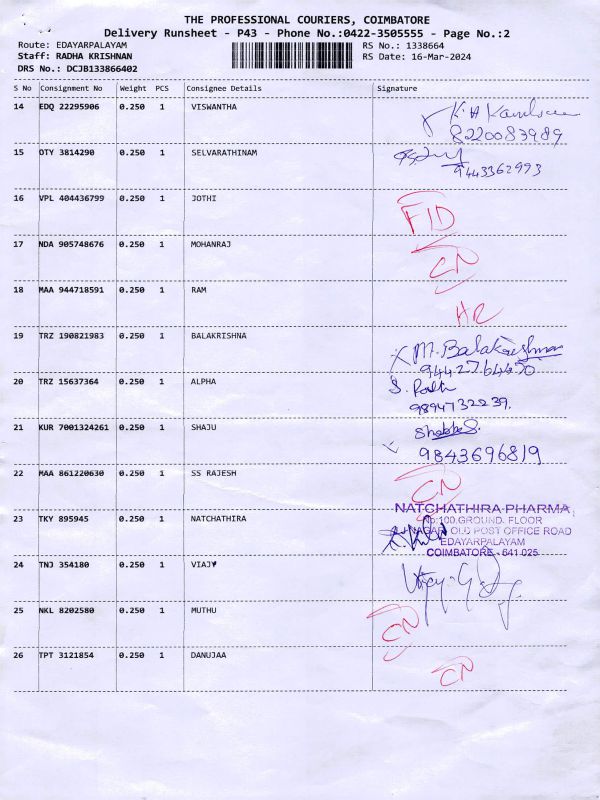 THE PROFESSIONAL COURIERS, COIMBATORE
Delivery Runsheet - P43 - Phone No.:0422-3505555 - Page No.:2
Route: EDAYARPALAYAM RS No.: 1338664
Staff: RADHA KRISHNAN RS Date: 16-Mar-2024
DRS No.: DCJB133866402
S No Consignment No Weight PCS Consignee Details Signature
14 EDQ 22295906 0.250 1 VISWANTHA
8220083989
15 OTY 3814290 0.250 1 SELVARATHINAM
9443362993
16 VPL 404436799 0.250 1 JOTHI
FID
17 NDA 905748676 0.250 1 MOHANRAJ
CN
18 MAA 944718591 0.250 1 RAM
HR
19 TRZ 190821983 0.250 1 BALAKRISHNA
M. Balakrishnan
9442764470
20 TRZ 15637364 0.250 1 ALPHA
9894732239.
21 KUR 7001324261 0.250 1 SHAJU
9843696819
22 MAA 861220630 0.250 1 SS RAJESH
CN
23 TKY 895945 0.250 1 NATCHATHIRA
NATCHATHIRA PHARMA
No:100,GROUND FLOOR
NAGAR OLD POST OFFICE ROAD
EDAYARPALAYAM
COIMBATORE - 641 025
24 TNJ 354180 0.250 1 VIAJY
25 NKL 8202580 0.250 1 MUTHU
CN
26 TPT 3121854 0.250 1 DANUJAA
CN